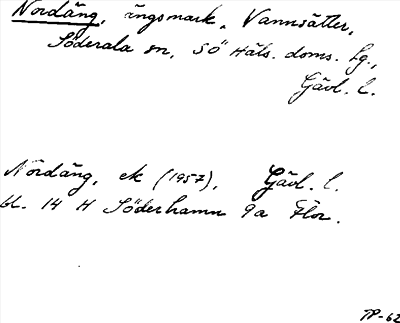 Nordäng, ängsmark, Vannsätter,
Söderala sn, SÖ Häls. doms. lg.,
Gävl. l.
Nordäng, ek (1957), Gävl. l.
bl. 14 H Söderhamn 9a Flor.
TP-62